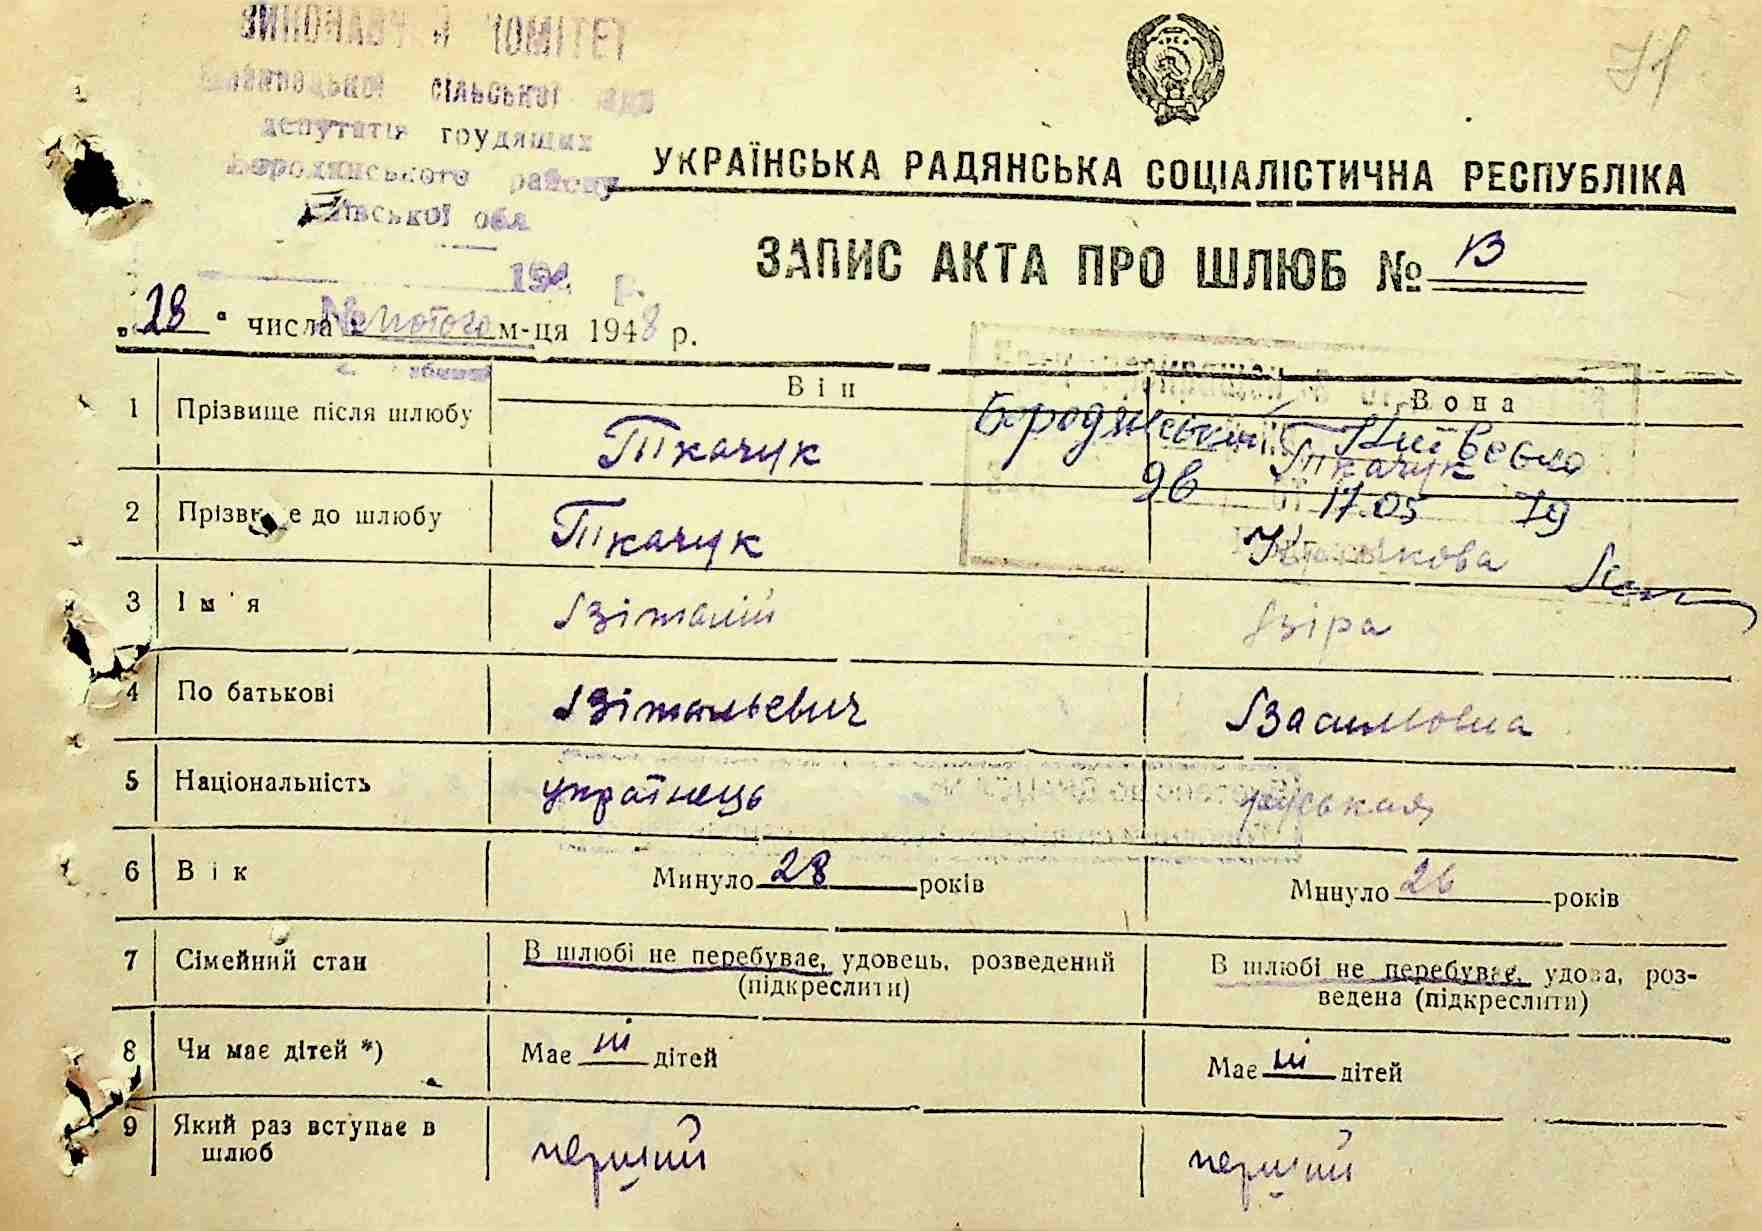 ВИКОНАВЧИЙ КОМІТЕТ
сільської
депутатів трудящих
Бородянського району
Київської обл
194 р.
71
УКРАЇНСЬКА РАДЯНСЬКА СОЦІАЛІСТИЧНА РЕСПУБЛІКА
ЗАПИС АКТА ПРО ШЛЮБ № 13
„28“ числа лютого м-ця 1948 р.
Він Вона
1 Прізвище після шлюбу Ткачук Ткачук
Бородянський Київської
96 17.05 79
2 Прізвище до шлюбу Ткачук
3 Ім'я Віталій Віра
4 По батькові Вітальевич Василовна
5 Національність українець руськая
6 Вік Минуло 28 років Минуло 26 років
7 Сімейний стан В шлюбі не перебуває, удовець, розведений (підкреслити) В шлюбі не перебуває, удова, роз-
ведена (підкреслити)
8 Чи має дітей *) Має ні дітей Має ні дітей
9 Який раз вступає в шлюб перший перший